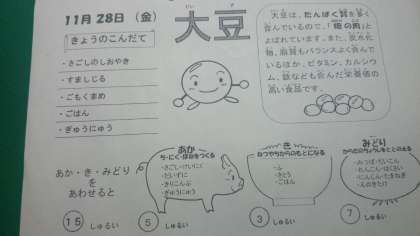 11月 28日 (金)
きょうのこんだて
・さごしのしおやき
・すましじる
・ごもくまめ
・ごはん
・ぎゅうにゅう
だいず
大豆
大豆は、たんぱく質を多く
含んでいるので、「畑の肉」と
よばれています。また、炭水化
物、脂質もバランスよく含んで
いるほか、ビタミン、カルシウ
ム、鉄なども含んだ栄養価の
高い食品です。
あか・き・みどり
を
あわせると
15 しゅるい
あか
ち・にく・ほねをつくる
・だいず
・きりこんぶ
・ぎゅうにゅう
5 しゅるい
き
ねつやちからのもとになる
・さとう
・ごはん
3 しゅるい
みどり
からだのちょうしをととのえる
・みつば・だいこん
・れんこん・はくさい
・にんじん・たまねぎ
・えのきたけ
7 しゅるい